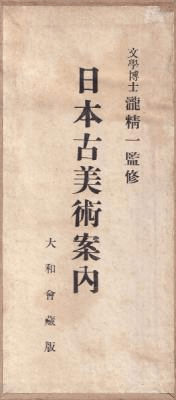 文學博士 瀧精一監修
日本古美術案內
大和會藏版